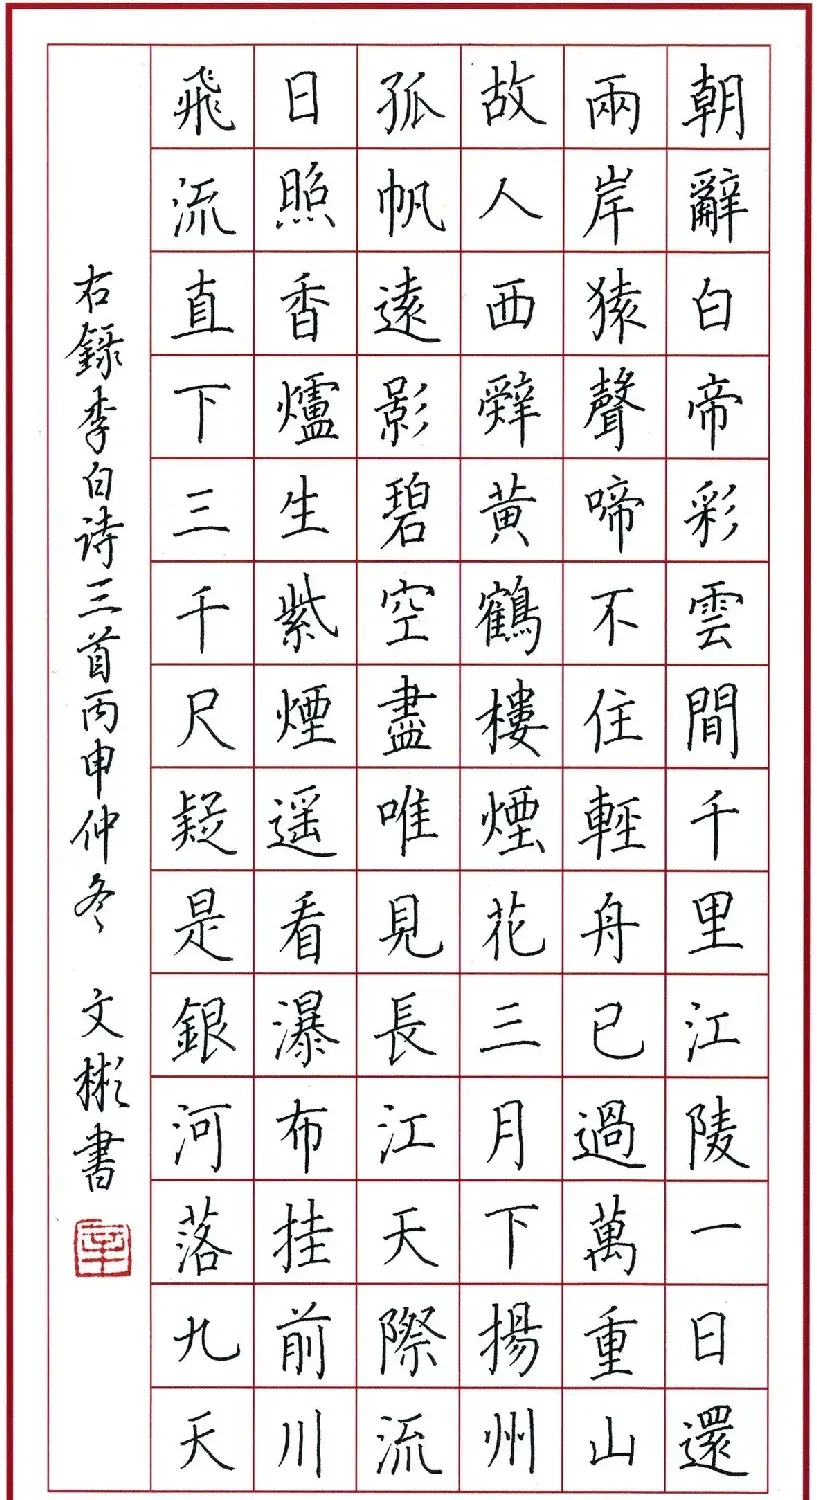 朝辭白帝彩雲間千里江陵一日還
兩岸猿聲啼不住輕舟已過萬重山
故人西辤黃鶴樓煙花三月下揚州
孤帆遠影碧空盡唯見長江天際流
日照香爐生紫煙遥看瀑布挂前川
飛流直下三千尺疑是銀河落九天
右録李白诗三首丙申仲冬 文彬書